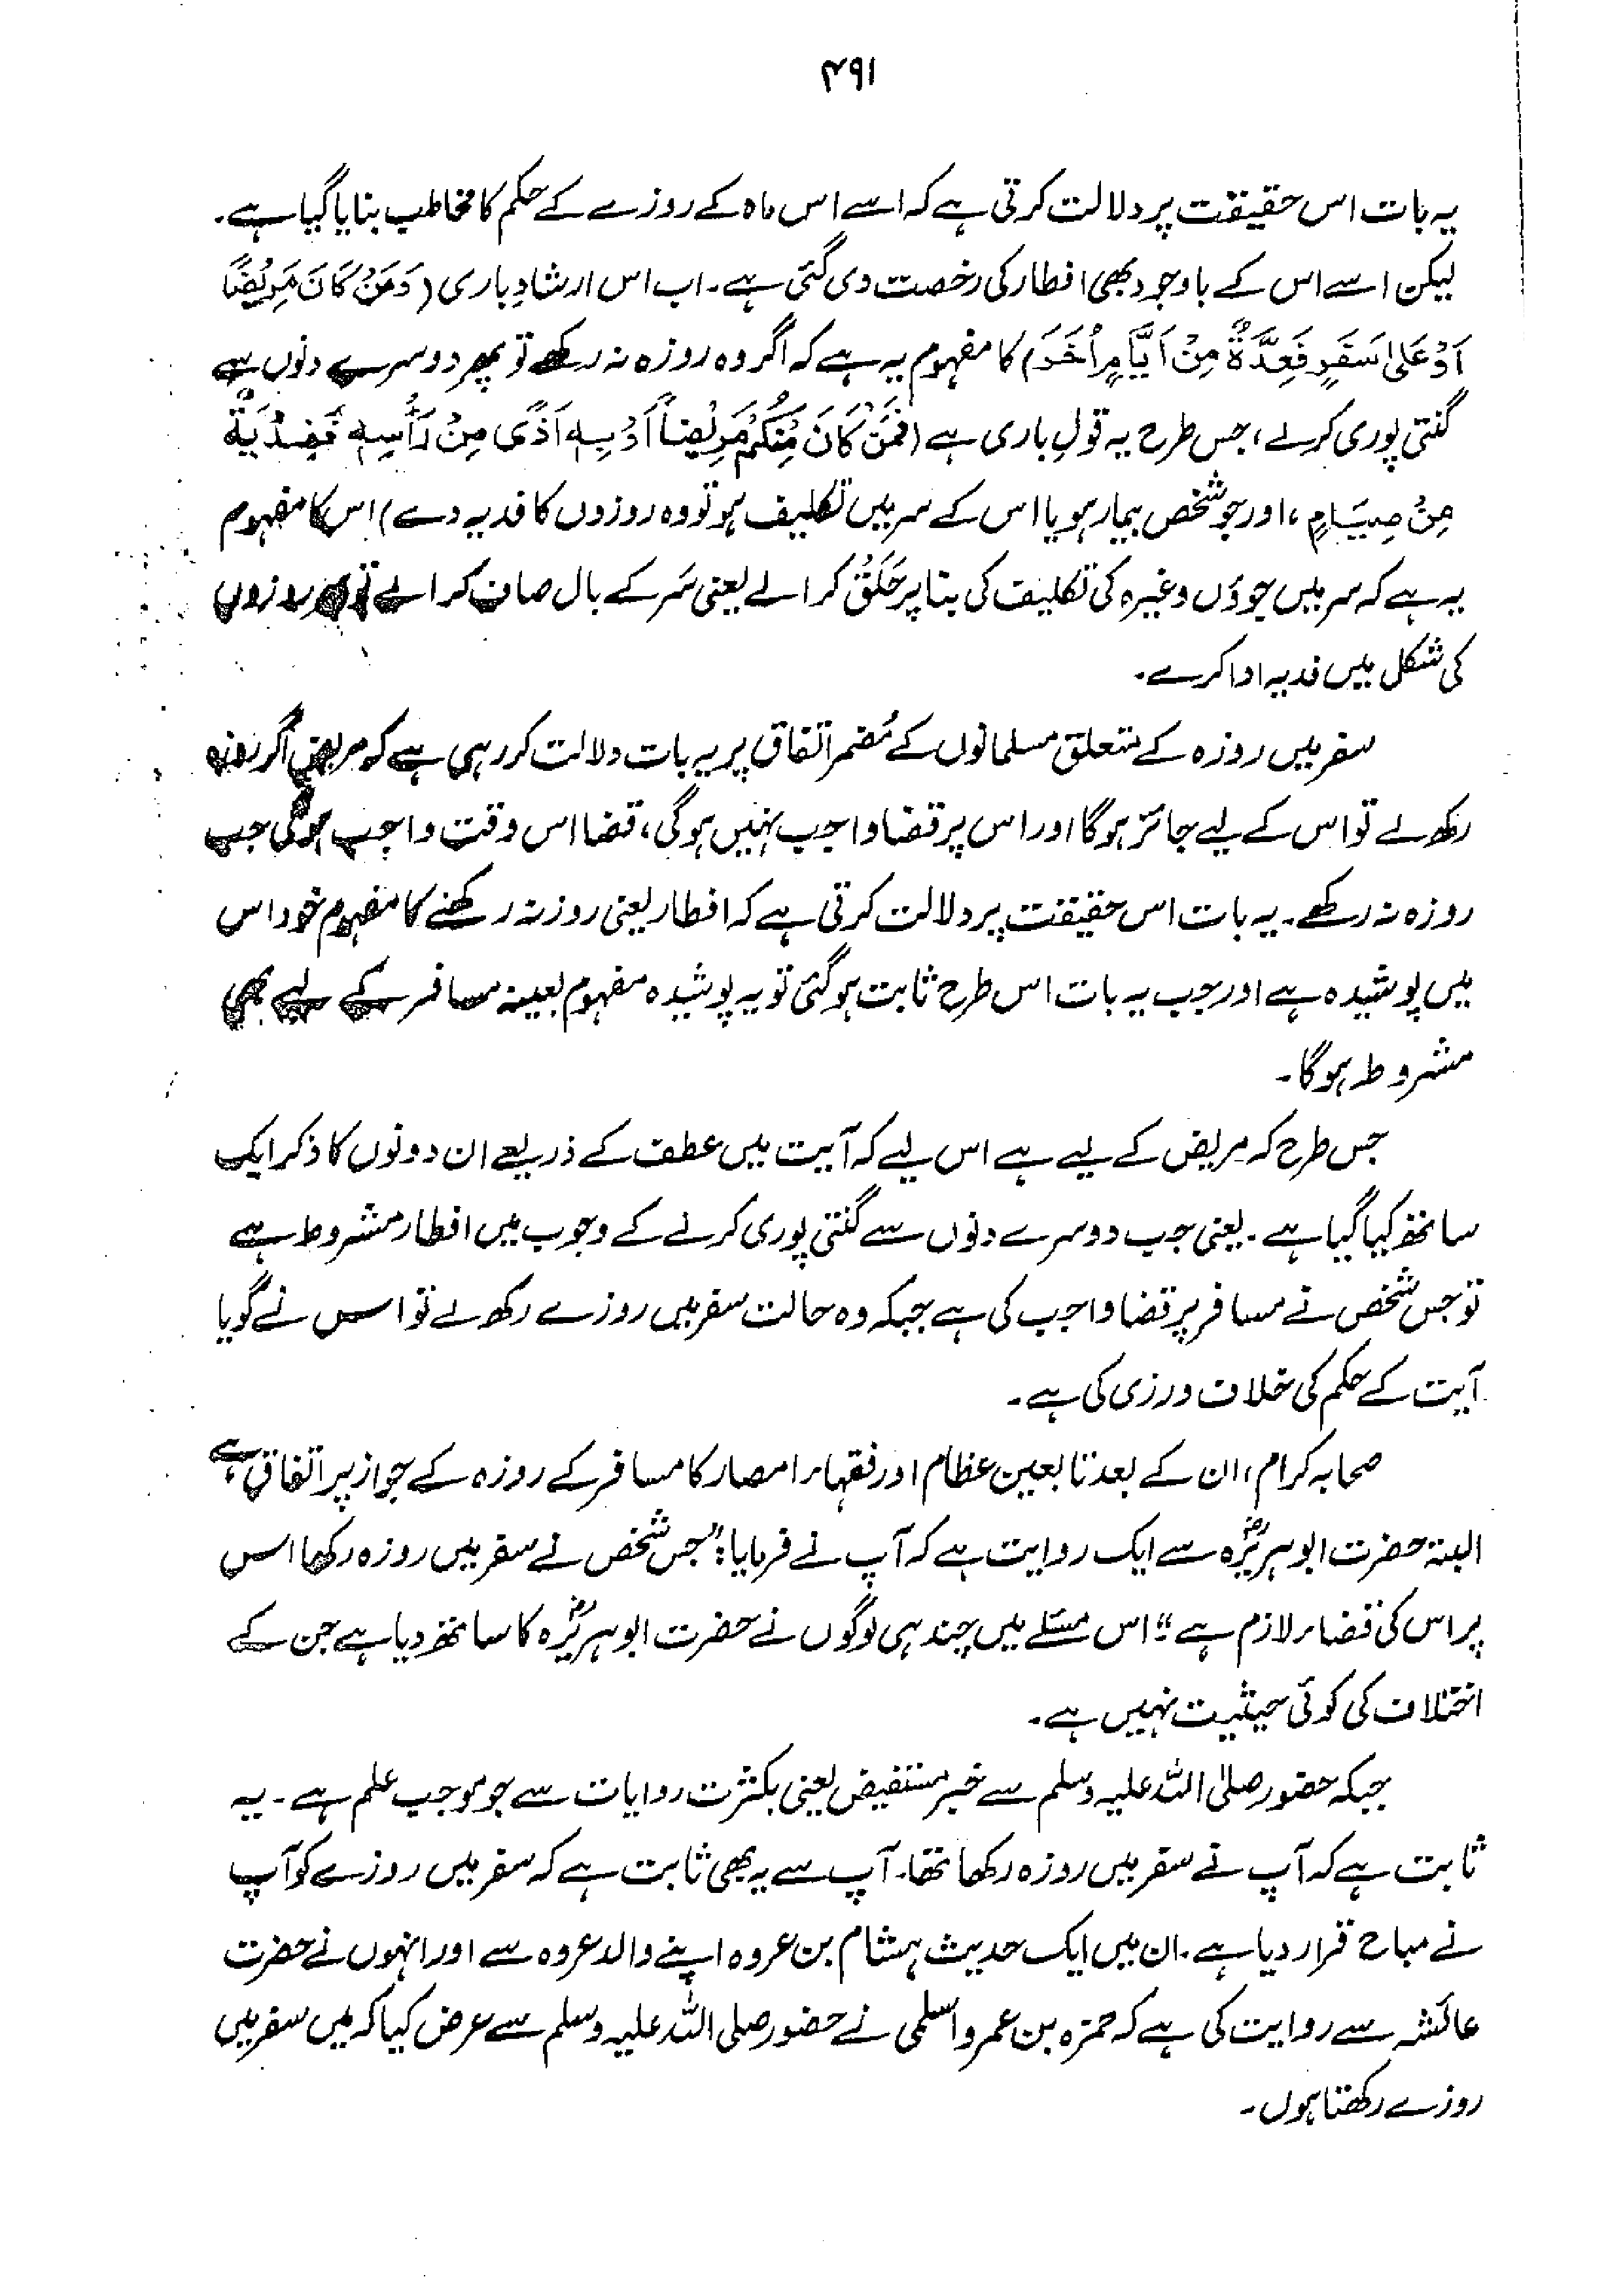 ۴۹۱
یہ بات اس حقیقت پر دلالت کرتی ہے کہ اسے اس ماہ کے روزے کے حکم کا مخاطب بنایا گیا ہے۔
لیکن اسے اس کے باوجود بھی افطار کی رخصت دی گئی ہے۔ اب اس ارشادِ باری (وَمَنْ كَانَ مَرِيْضًا
اَوْ عَلٰى سَفَرٍ فَعِدَّةٌ مِنْ اَيَّامٍ اُخَرَ) کا مفہوم یہ ہے کہ اگر وہ روزہ نہ رکھے تو پھر دوسرے دنوں سے
گنتی پوری کرلے، جس طرح یہ قولِ باری ہے (فَمَنْ كَانَ مِنْكُمْ مَرِيْضاً اَوْ بِهٖ اَذًى مِنْ رَأْسِهٖ فَفِدْيَةٌ
مِنْ صِيَامٍ، اور جو شخص بیمار ہو یا اس کے سر میں تکلیف ہو تو وہ روزوں کا فدیہ دے) اس کا مفہوم
یہ ہے کہ سر میں جوؤں وغیرہ کی تکلیف کی بنا پر حَلَق کرالے یعنی سَر کے بال صاف کرالے تو روزوں
کی شکل میں فدیہ ادا کرے۔
سفر میں روزہ کے متعلق مسلمانوں کے مُضمر اتفاق پر یہ بات دلالت کررہی ہے کہ مریض اگر روزہ
رکھ لے تو اس کے لیے جائز ہوگا اور اس پر قضا واجب نہیں ہوگی، قضا اس وقت واجب ہوگی جب
روزہ نہ رکھے۔ یہ بات اس حقیقت پر دلالت کرتی ہے کہ افطار یعنی روزنہ رکھنے کا مفہوم خود اس
میں پوشیدہ ہے اور جب یہ بات اس طرح ثابت ہوگئی تو یہ پوشیدہ مفہوم بعینہ مسافر کے لیے بھی
مشروط ہوگا۔
جس طرح کہ مریض کے لیے ہے اس لیے کہ آیت میں عطف کے ذریعے ان دونوں کا ذکر ایک
ساتھ کیا گیا ہے۔ یعنی جب دوسرے دنوں سے گنتی پوری کرنے کے وجوب میں افطار مشروط ہے
تو جس شخص نے مسافر پر قضا واجب کی ہے جبکہ وہ حالت سفر میں روزے رکھ لے تو اس نے گویا
آیت کے حکم کی خلاف ورزی کی ہے۔
صحابہ کرام، ان کے بعد تابعین عظام اور فقہاء امصار کا مسافر کے روزہ کے جواز پر اتفاق ہے،
البتہ حضرت ابوہریرہؓ سے ایک روایت ہے کہ آپ نے فرمایا: "جس شخص نے سفر میں روزہ رکھا اس
پر اس کی قضاء لازم ہے" اس مسئلے میں چند ہی لوگوں نے حضرت ابوہریرہؓ کا ساتھ دیا ہے جن کے
اختلاف کی کوئی حیثیت نہیں ہے۔
جبکہ حضور صلی اللہ علیہ وسلم سے خبر مستفیض یعنی بکثرت روایات سے جو موجب علم ہے۔ یہ
ثابت ہے کہ آپ نے سفر میں روزہ رکھا تھا۔ آپ سے یہ بھی ثابت ہے کہ سفر میں روزے کو آپ
نے مباح قرار دیا ہے۔ ان میں ایک حدیث ہشام بن عروہ اپنے والد عروہ سے اور انہوں نے حضرت
عائشہ سے روایت کی ہے کہ حمزہ بن عمرو اسلمی نے حضور صلی اللہ علیہ وسلم سے عرض کیا کہ میں سفر میں
روزے رکھتا ہوں۔